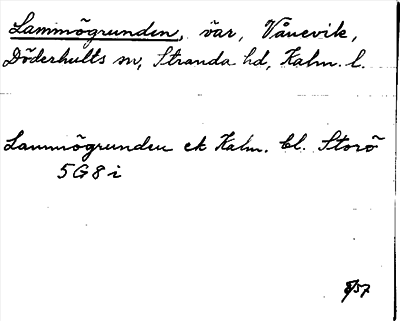 Lammögrunden, vär, Vånevik,
Döderhults sn, Stranda hd, Kalm. l.
Lammögrunden ek Kalm. bl. Storö
5G8i
8/57